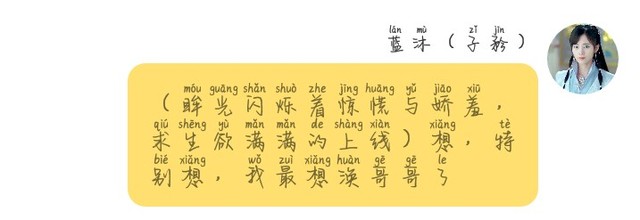 lán mù zǐ jīn
蓝沐（子矜）
móu guāng shǎn shuò zhe jīng huāng yǔ jiāo xiū
（眸光闪烁着惊慌与娇羞，
qiú shēng yù mǎn mǎn de shàng xiàn xiǎng tè
求生欲满满的上线）想，特
bié xiǎng wǒ zuì xiǎng huàn gē gē le
别想，我最想涣哥哥了